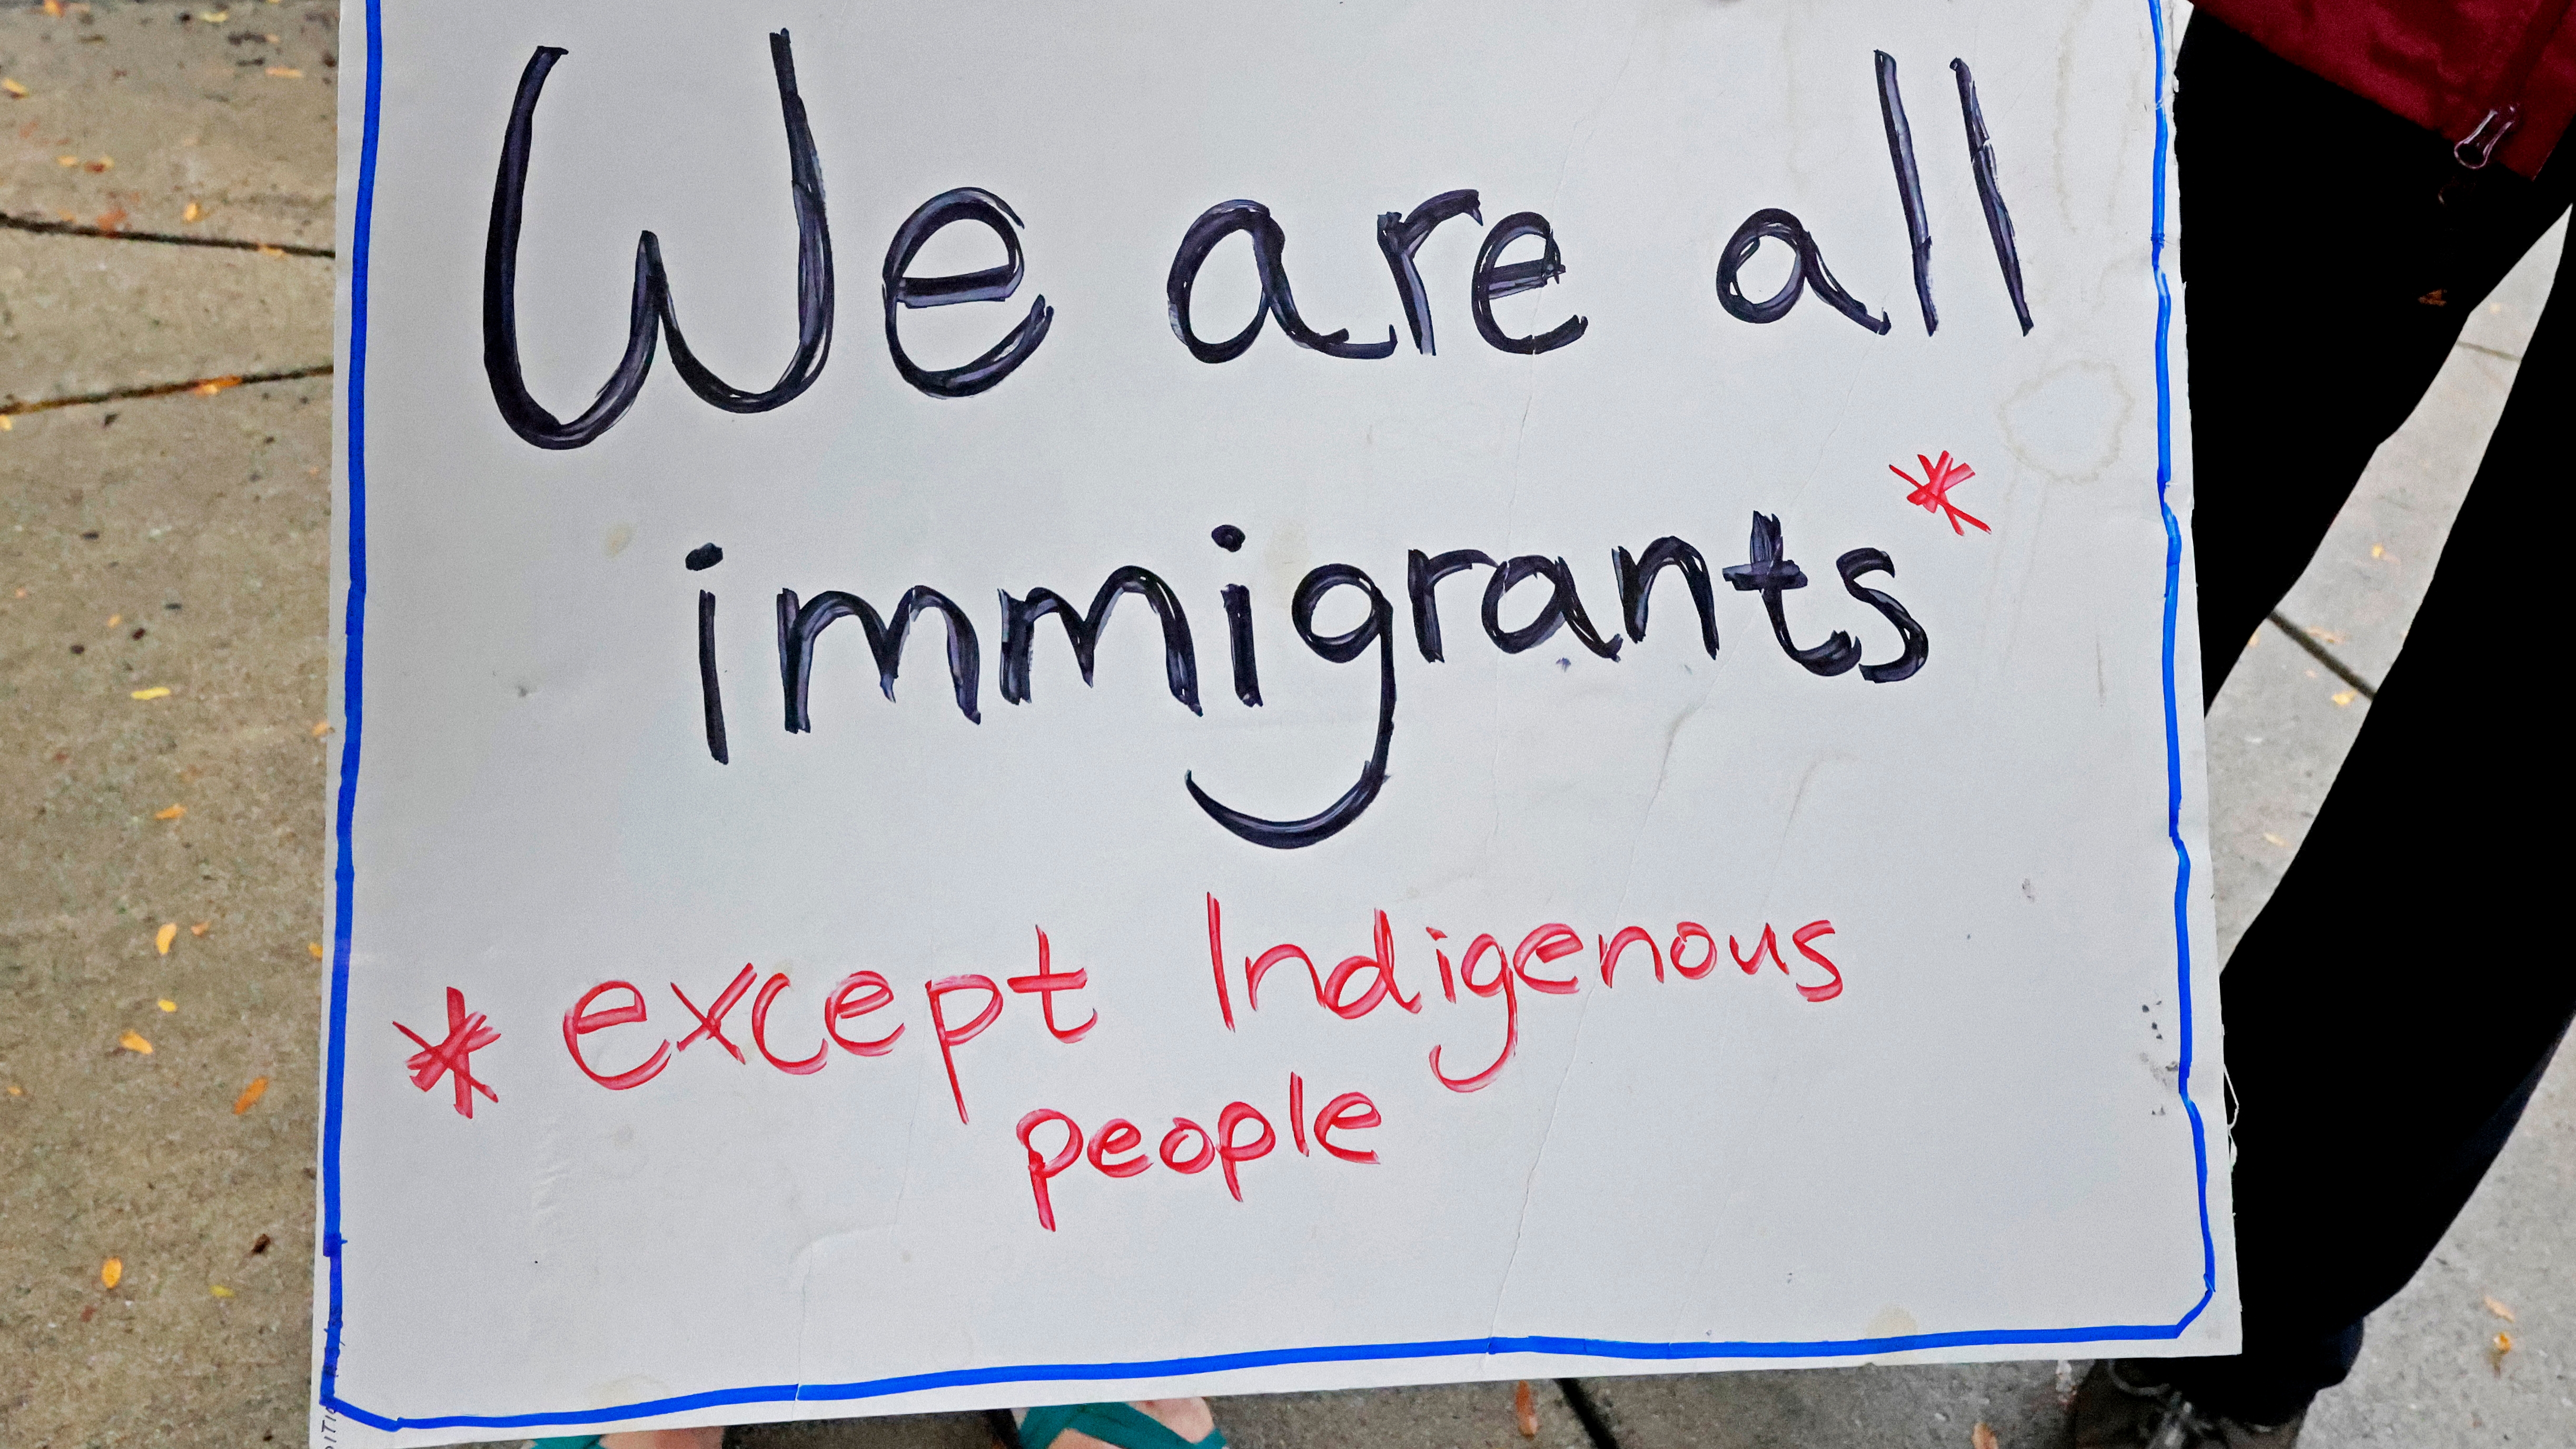 We are all
immigrants*
* except Indigenous
people